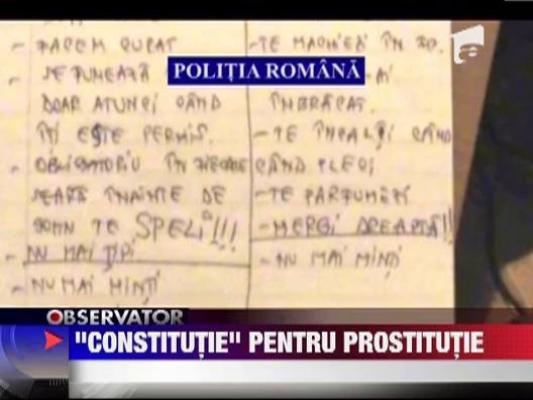 - FACEM CURAT
SE FUMEAZĂ
DOAR ATUNCI CÂND
ÎȚI ESTE PERMIS.
- OBLIGATORIU ÎN FIECARE
SEARĂ ÎNAINTE DE
SOMN TE SPELI!!!
- NU MAI ȚIPI
- NU MAI MINȚI
- TE MACHIEZI ÎN
ÎMBRĂCAT.
- TE ÎNCALȚI CÂND
CÂND PLECI
- TE PARFUMEZI
- MERGI DREAPTĂ!!
- NU MAI MINȚI
POLIȚIA ROMÂNĂ
OBSERVATOR
"CONSTITUȚIE" PENTRU PROSTITUȚIE